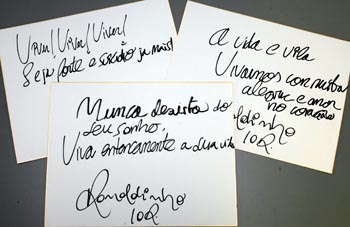 Viver! Viver! Viver!
Seja forte e
A vida é vila
Vivamos com muita
alegria e amor
no coração
Ronaldinho
10 R.
Nunca desista do
seu sonho,
Viva intensamente a sua vida
Ronaldinho
10 R.